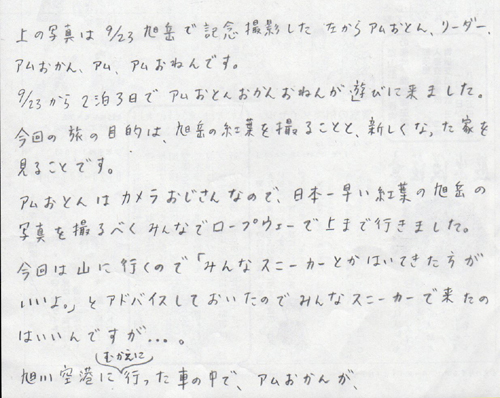 上の写真は 9/23 旭岳で記念撮影した 左からアムおとん、リーダー、
アムおかん、アム、アムおねんです。
9/23から2泊3日でアムおとんおかんおねんが遊びに来ました。
今回の旅の目的は、旭岳の紅葉を撮ることと、新しくなった家を
見ることです。
アムおとんはカメラおじさんなので、日本一早い紅葉の旭岳の
写真を撮るべくみんなでロープウェーで上まで行きました。
今回は山に行くので「みんなスニーカーとかはいてきた方が
いいよ。」とアドバイスしておいたのでみんなスニーカーで来たの
はいいんですが…。
むかえに
旭川空港に行った車の中で、アムおかんが、